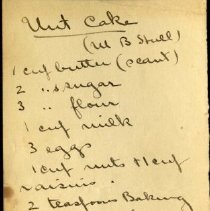 Nut Cake
(W B Stull)
1 cuf butter (scant)
2 " sugar
3 " flour
1 cuf milk
3 eggs
1 cuf nuts & 1 cuf
raisins
2 teaspoons Baking